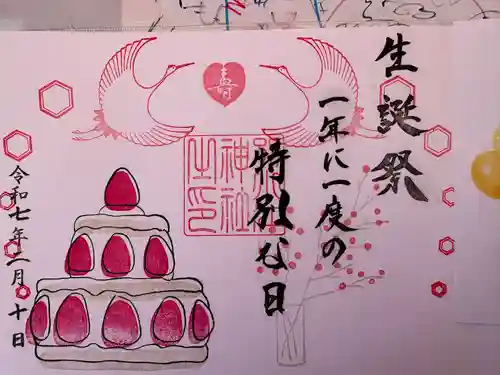 生誕祭
一年に一度の
特別な日
寿
神社
之印
令和七年二月十日